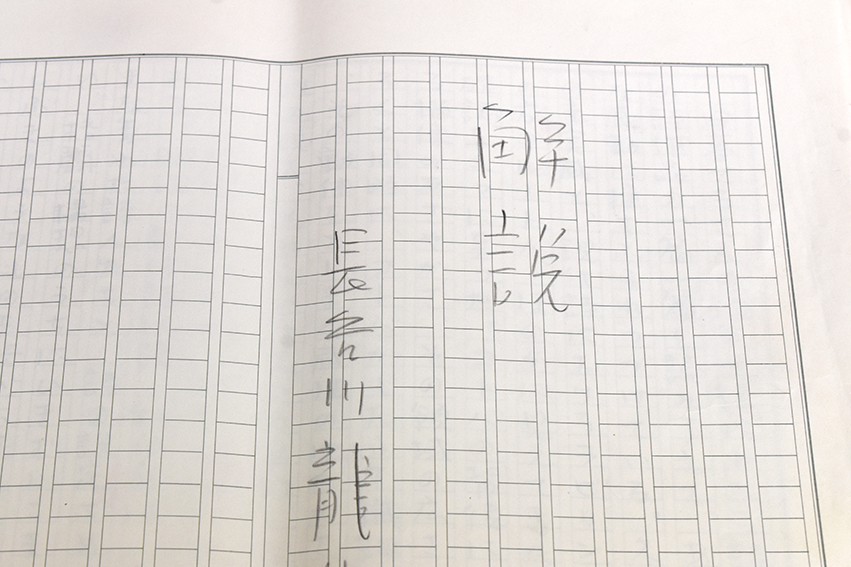 解説
長谷川龍